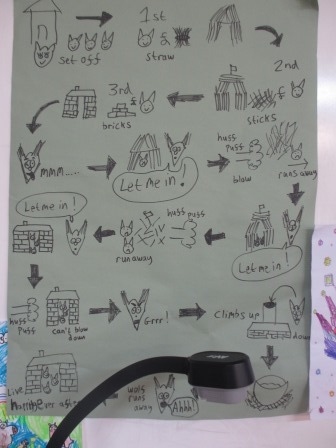 1st
set off
&
straw
2nd
3rd
&
&
bricks
sticks
mmm....
Let me in!
huff
puff
blow
runs away
Let me in!
huff puff
run away
Let me in!
huff
puff
can't blow
down
Grrr!
Climbs up
down
Live
Happily ever after
wolf
runs
away
Ahhh!